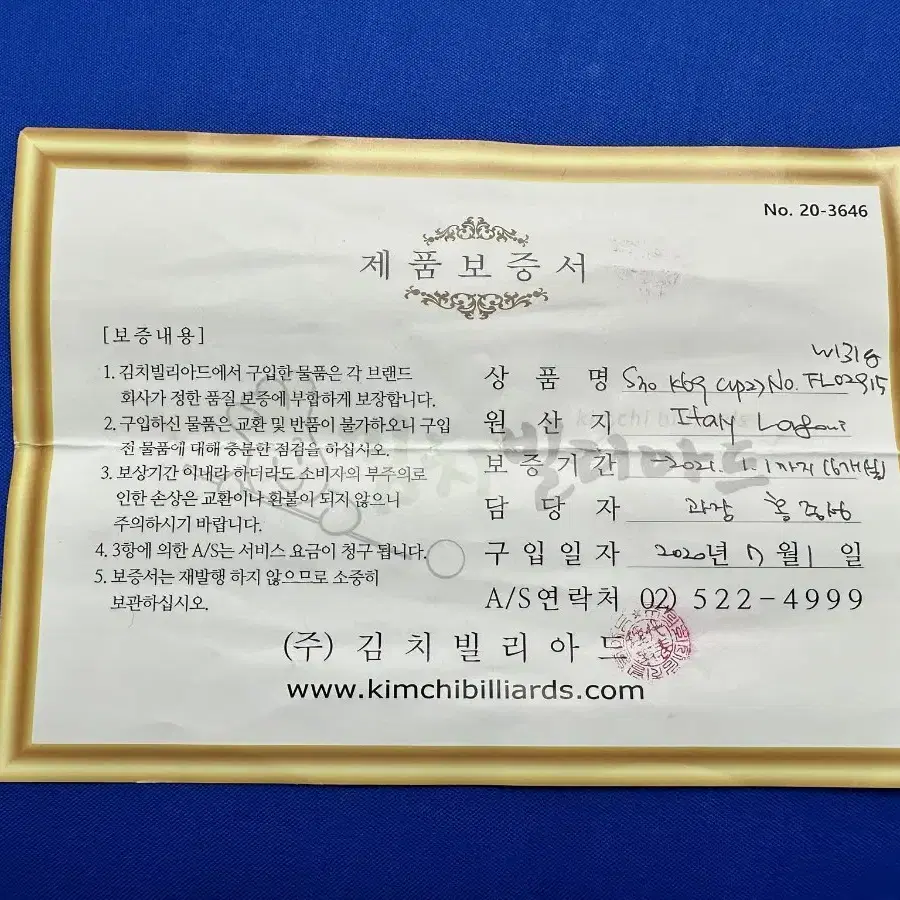 No. 20-3646
제품보증서
[보증내용]
1. 김치빌리아드에서 구입한 물품은 각 브랜드
회사가 정한 품질 보증에 부합하게 보장합니다.
2. 구입하신 물품은 교환 및 반품이 불가하오니 구입
전 물품에 대해 충분한 점검을 하십시오.
3. 보상기간 이내라 하더라도 소비자의 부주의로
인한 손상은 교환이나 환불이 되지 않으니
주의하시기 바랍니다.
4. 3항에 의한 A/S는 서비스 요금이 청구 됩니다.
5. 보증서는 재발행 하지 않으므로 소중히
보관하십시오.
상품명 No. FL02915
원산지 Italy
보증기간 2021. 1. 1까지 (6개월)
담당자 과장 홍
구입일자 2020년 7월 1일
A/S연락처 02) 522-4999
(주) 김치빌리아드
www.kimchibilliards.com